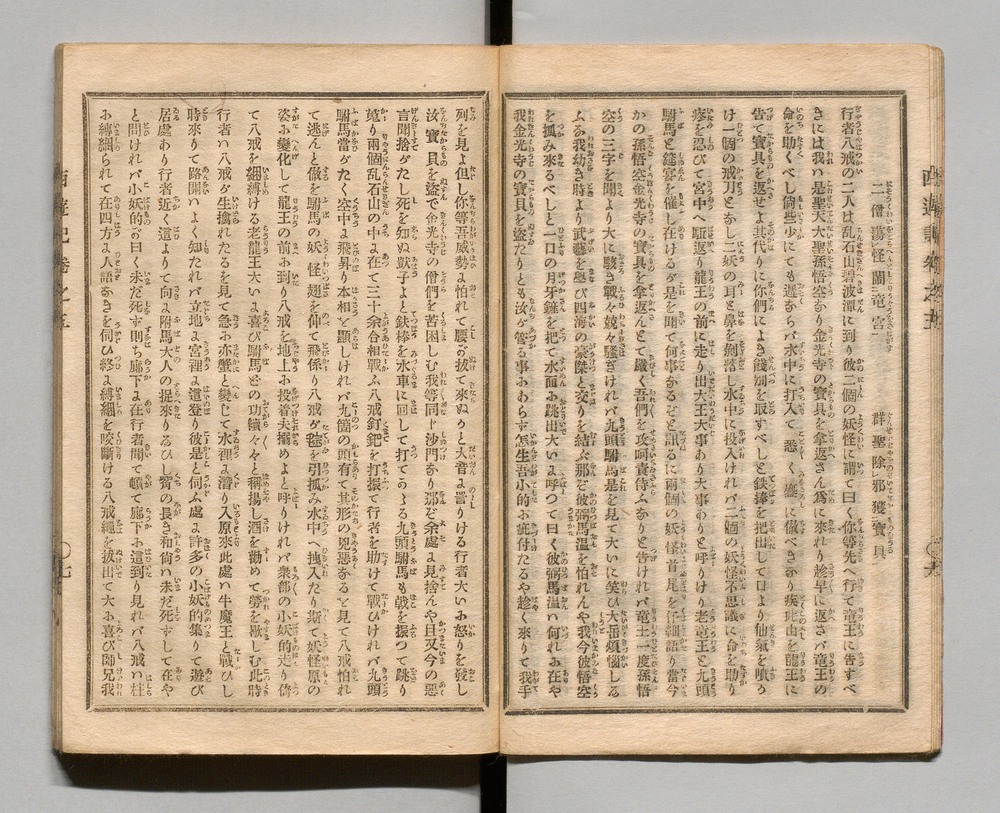 二僧蕩怪鬧竜宮　群聖除邪獲寶貝
行者八戒の二人は乱石山碧波潭に到り彼二個の妖怪に謂て曰く你等先へ行て竜王に告すべ
きには我ハ是聖天大聖孫悟空なり金光寺の寶貝を拿返さん為に来れり趁早に返さバ竜王の
命を助くべし倘些少にても遅からバ水中に打入て悉く塵に做べきなり疾此由を龍王に
告て寶貝を返せよ其代りに你們によき餞別を取すべしと鉄捧を把出して口より仙氣を噴う
け一個の戒刀となし二妖の耳と鼻を剃落し水中に投入けれバ二個の妖怪不思議に命を助り
疼を忍びて宮中へ駈返り龍王の前に走り出大王大事あり大事ありと呼りけり老竜王と九頭
駙馬と筵宴を催し在けるが是を聞て何事なるぞと訊るに兩個の妖怪首尾を仔細語り當今
かの孫悟空金光寺の寶貝を拿返んとて我々吾們を攻呵責侍ふなりと告けれバ竜王一度孫悟
空の三字を聞より大に駭き戰々兢々騒ぎけれバ九頭駙馬是を見て大いに笑ひ大岳煩惱しる
ふな我幼き時より武藝を學び四海の豪傑と交りを結ぶ那ぞ彼弼馬温を怕れんや我今彼悟空
を孤み來るべしと一口の月牙鏟を把て水面ふ跳出大いよ呼つて曰く彼弼馬温ハ何れふ在や
我金光寺の寶貝を盜たりとも汝が管る事ふわらず怎生吾小的ふ疵付たるや趁く來りて我手
列を見よ但し你等吾威勢よ怕れて腰の拔て來ぬのと大音よ詈りける行者大いふ怒りを發し
汝寶貝を盜で金光寺の僧們を苦困しむ我等同じ沙門なり那ぞ余處よ見捨んや且又今の惡
言聞捨がたし死を知ぬ獃子よと鉄棒を水車に回して打てかゝる九頭駙馬も戟を振つて跳り
蒐り兩個乱石山の中よ在て三十余合相戰ふ八戒釘耙を打振て行者を助けて戰ひけれバ九頭
駙馬當がたく空中よ飛昇り本相を顯しけれバ九箇の頭有て其形の兇惡なると見て八戒怕れ
て逃んと做を駙馬の妖怪翅を伸て飛係り八戒が毯を引孤み水中へ拽入たり斯て妖怪原の
姿ふ變化して龍王の前ふ到り八戒を地上ふ投着夫搦めよと呼りけれバ衆部の小妖的走り倚
て八戒を綑縛ける老龍王大いよ喜び駙馬との功績々々と稱揚し酒を勸めて勞を歇しむ此時
行者ハ八戒が生擒れたるを見て急ふ亦蟹と變じて水裡よ潛り入原來此處ハ牛魔王と戰ひし
時來りて路開ハよく知たれバ立地よ宮裡よ這登り彼是と伺ふ處よ許多の小妖的集りて遊び
居處あり行者近く這よりて向よ附馬大人の捉來りるひし嘴の長き和尚ハ未だ死ずして在や
と問けれバ小妖的の曰く未だ死ず則ち廊下よ在行者聞て頓て廊下ふ這到り見れバ八戒ハ柱
ふ縛綑られて在四方よ人語なきを伺ひ終よ縛綑を咬斷ける八戒繩を拔出て大ふ喜び師兄我
西遊記巻之五
〇七